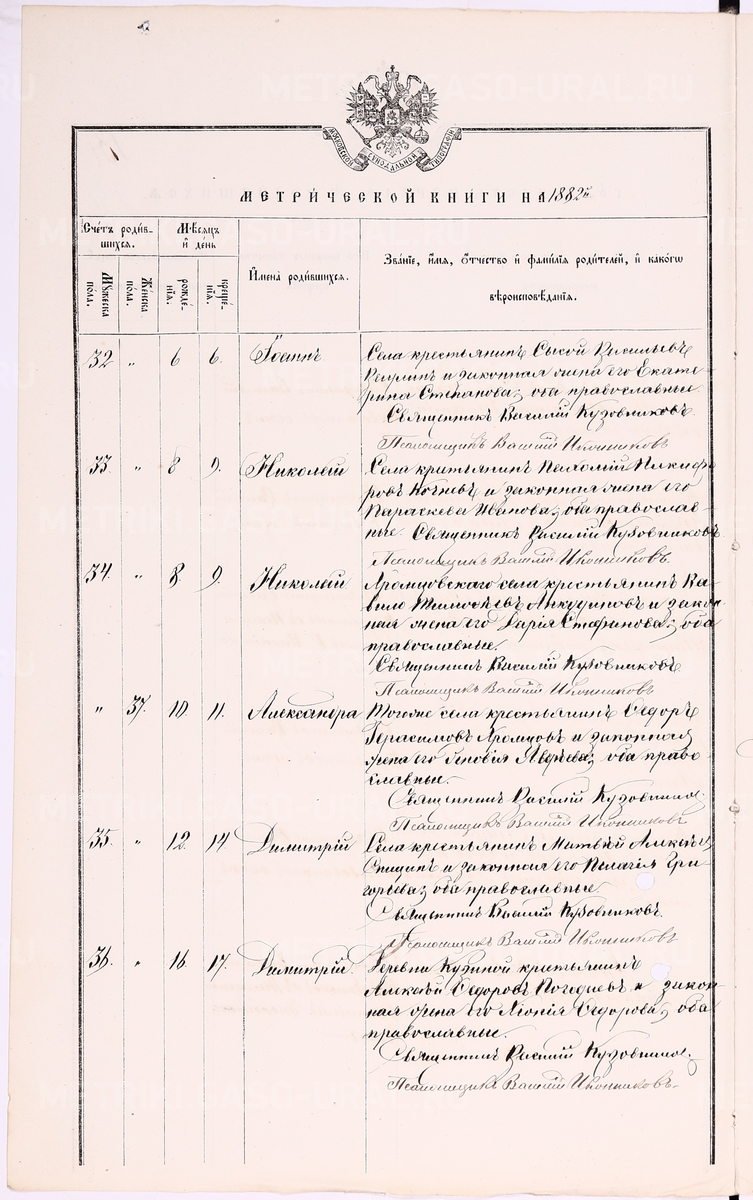 МОСКОВСКОЙ СѴНОДАЛЬНОЙ ТИПОГРАФІИ
МЕТРИ́ЧЕСКОЙ КНИГИ НА 1882й
Счётъ роди́вшихся.
Мѣ́сяцъ и день
Имена̀ роди́вшихся.
Зва́нїе, и́мя, ѻ҆́тчество и҆ фами́лїя роди́телей, и҆ како́гѡ
вѣроисповѣ́данїя.
Мꙋ́жеска по́ла.
Же́нска по́ла.
рожде́нїѧ.
креще́нїѧ.
32 „ 6 6. Іоаннъ
Села крестьянинъ Сысой Васильевъ
и законная жена его Екате-
рина Степанова; оба православные
Священникъ Василій Кузовниковъ
Псаломщикъ Василій Иконниковъ
33. „ 8 9. Николай
Села крестьянинъ Пахомій Никифо-
ровъ и законная жена его
Параскева Иванова; оба православ-
ные. Священникъ Василій Кузовниковъ
Псаломщикъ Василій Иконниковъ.
34. „ 8. 9. Николай
села крестьянинъ Ва-
вило Тимофеевъ Анкудиновъ и закон-
ная жена его Дарія Стефанова; оба
православные.
Священникъ Василій Кузовниковъ
Псаломщикъ Василій Иконниковъ
„ 37. 10. 11. Александра
Тогоже села крестьянинъ Ѳедоръ
Герасимовъ и законная
жена его оба право-
славные.
Священникъ Василій Кузовниковъ
Псаломщикъ Василій Иконниковъ
35. „ 12 14 Димитрій
Села крестьянинъ Матвѣй Алексѣевъ
и законная его Пелагія Гри-
горьева; оба православные.
Священникъ Василій Кузовниковъ.
Псаломщикъ Василій Иконниковъ
36. „ 16 17. Димитрій.
Деревни Кузиной крестьянинъ
Алексѣй Ѳедоровъ и закон-
ная жена его Ѳедорова; оба
православные.
Священникъ Василій Кузовниковъ.
Псаломщикъ Василій Иконниковъ.